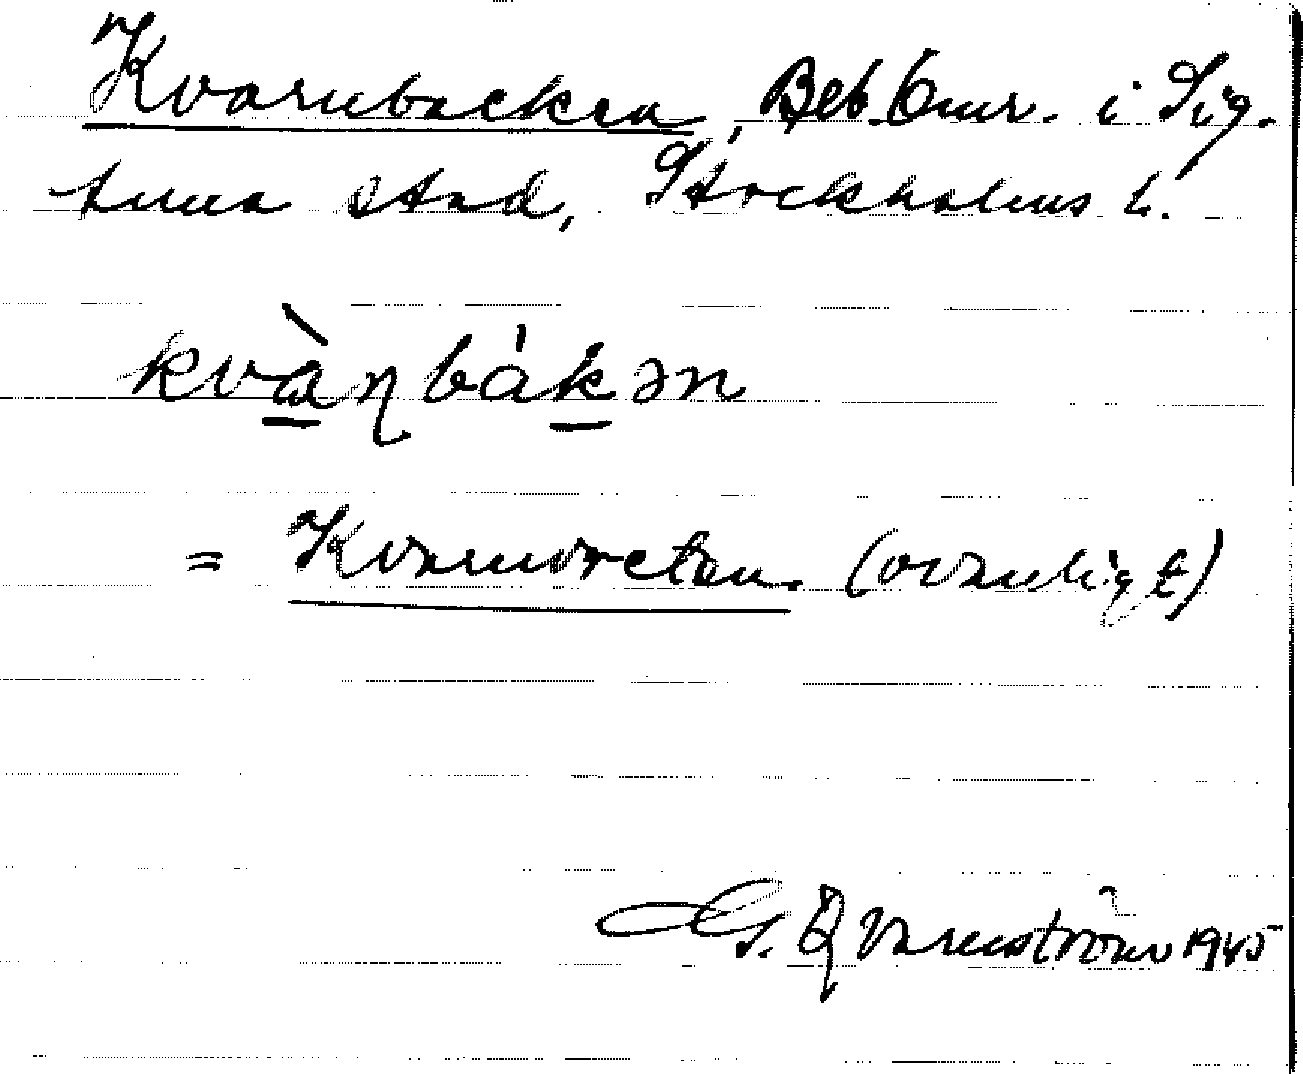 Kvarnbacken, Beb. omr. i Sig-
tuna stad, Stockholms l.
kvàɳbákən
= Kvarnvreten (ovanligt)
G. Qvarnström 1945